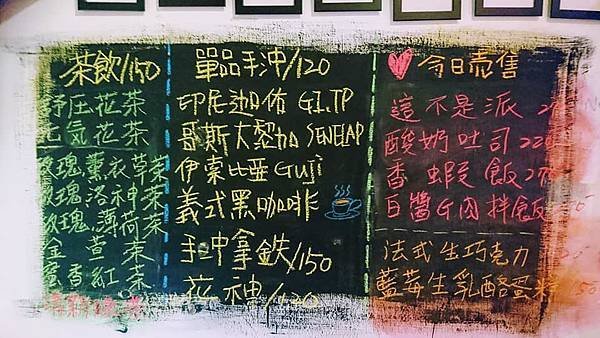 茶飲/150
舒压花茶
花茶
玫瑰薰衣草茶
玫瑰洛神茶
玫瑰薄荷茶
金萱茶
蜜香紅茶
單品手沖/120
印尼迦佑 G1.TP
哥斯大黎加 SENELAP
伊索比亞 Guji
義式黑咖啡
手中拿鐵/150
花神/120
今日売售
這不是派
酸奶吐司 220
香蝦飯
白醬G肉拌飯
法式生巧克力
藍莓生乳酪蛋糕